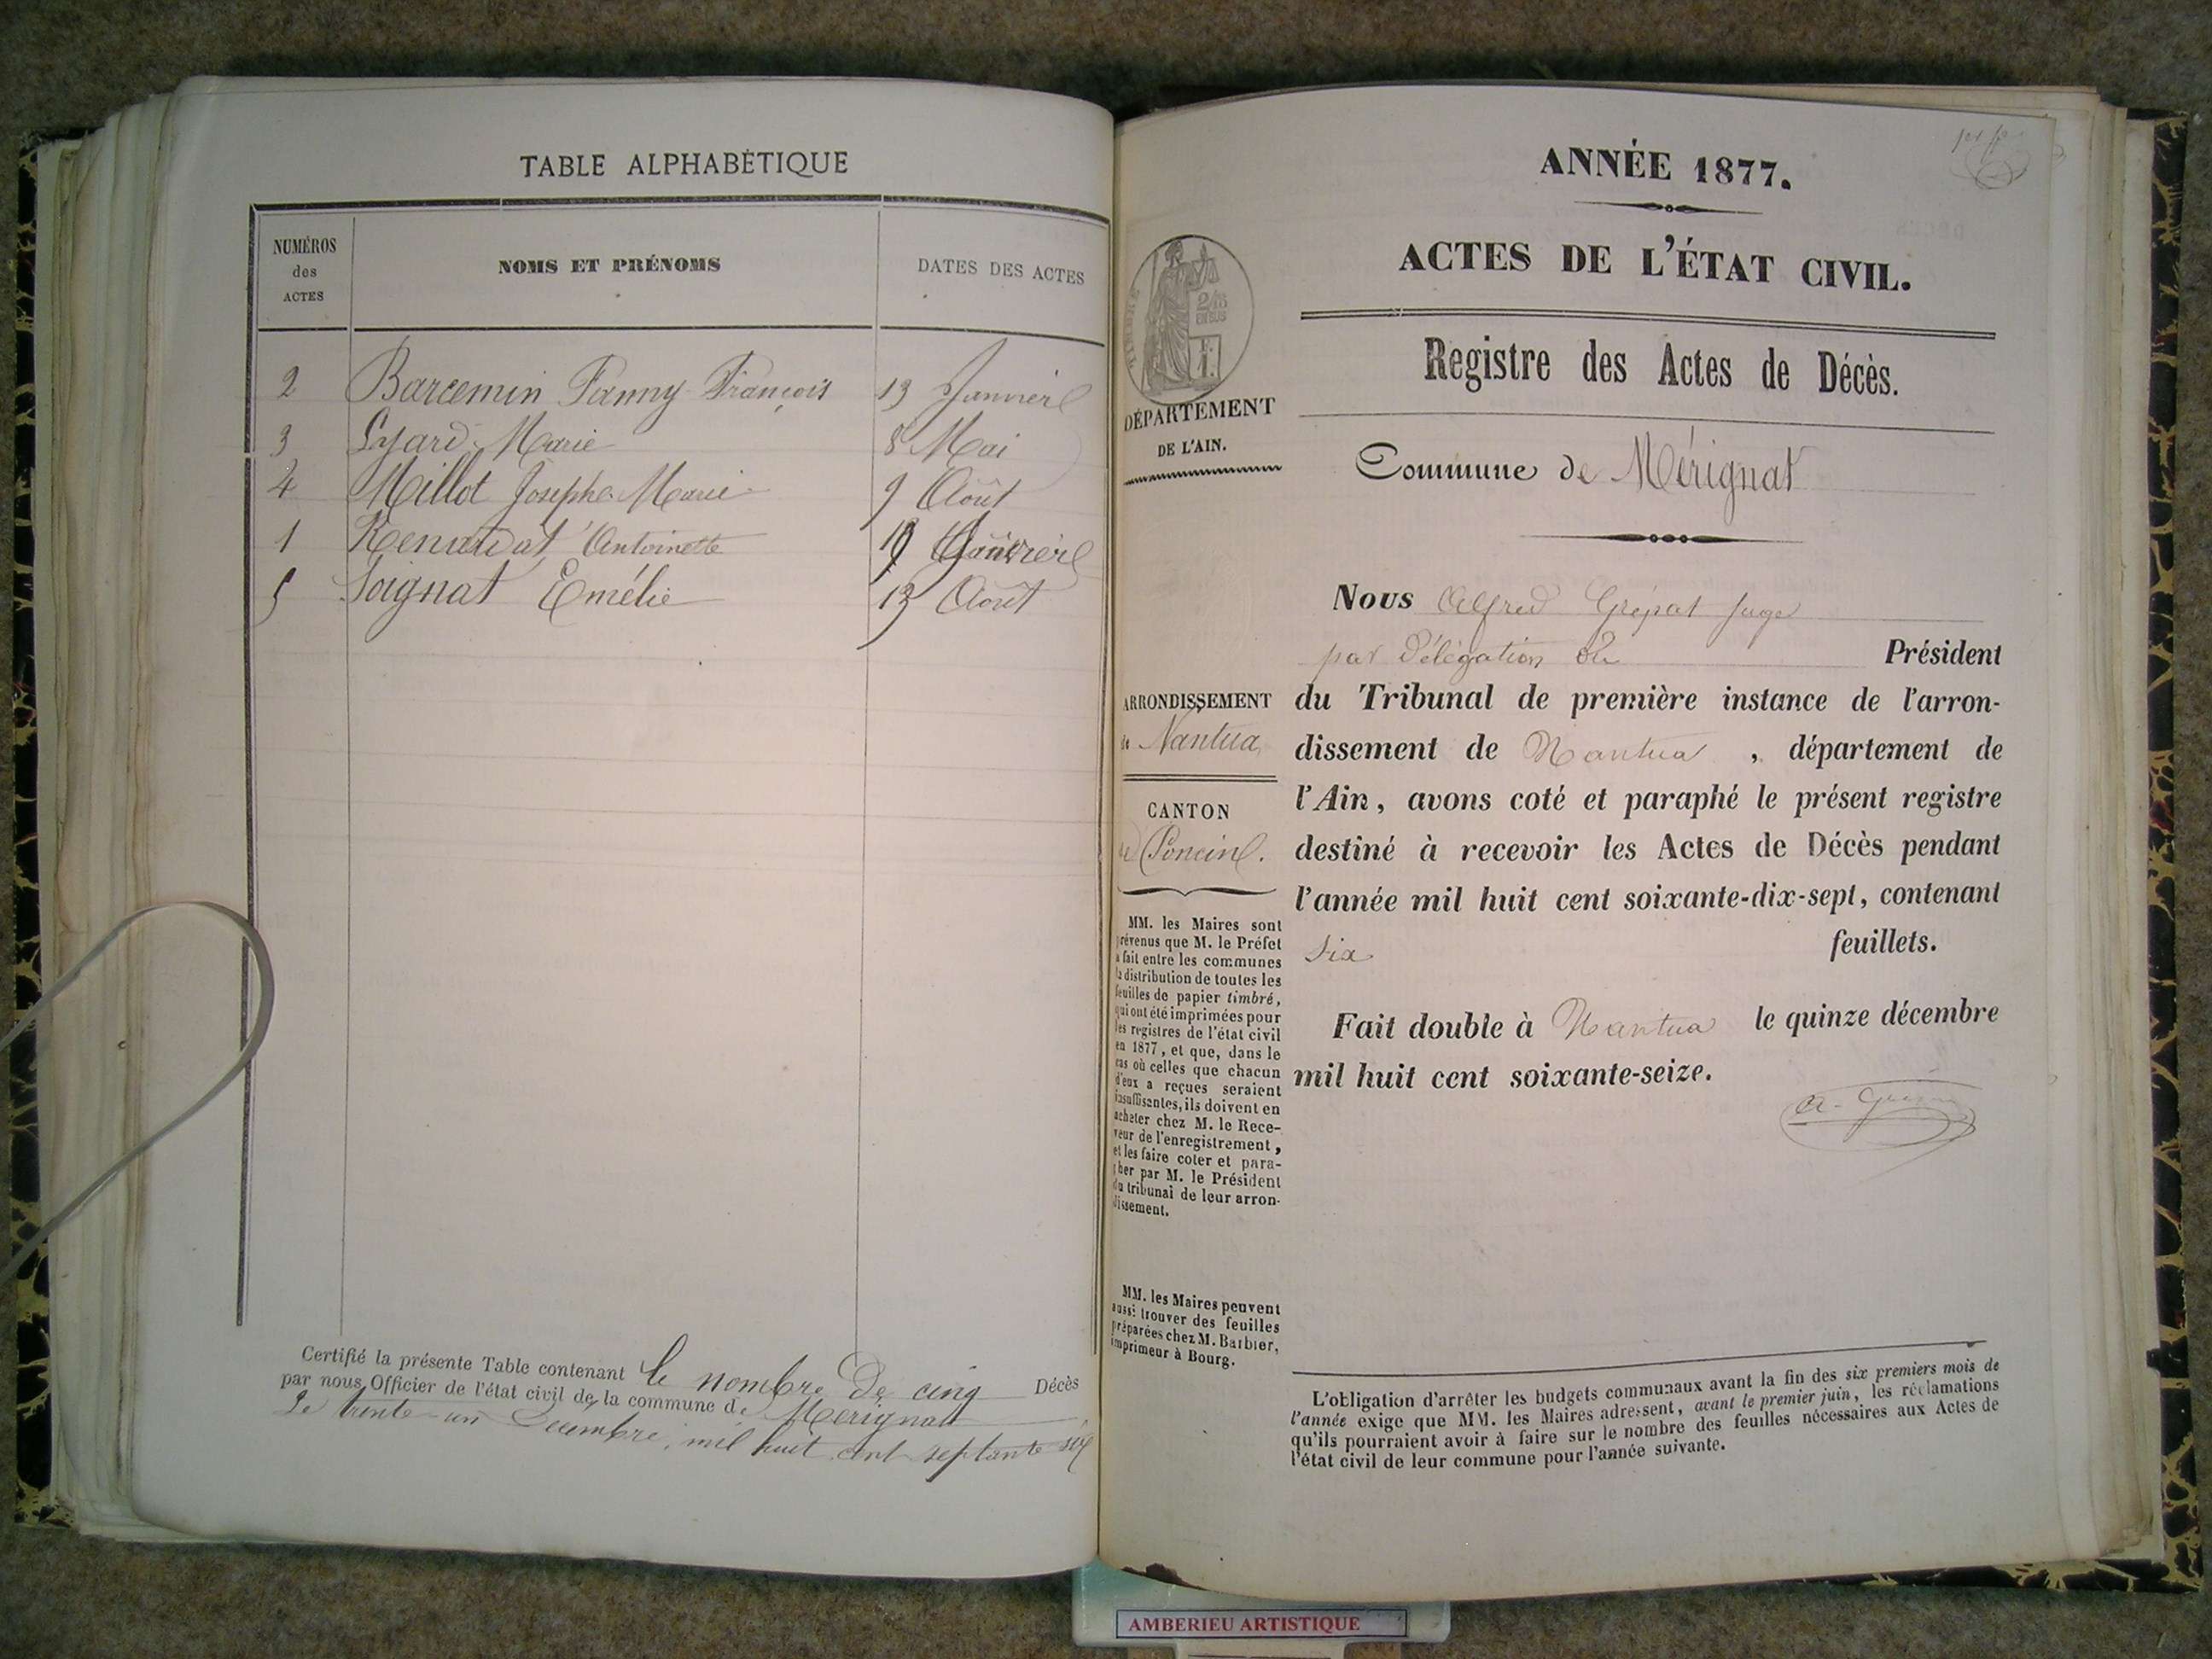 TABLE ALPHABÉTIQUE
NUMÉROS des ACTES
NOMS ET PRÉNOMS
DATES DES ACTES
2 Barcemin Fanny François 13 Janvier
3 Syard Marie 8 Mai
4 Millot Josephe Marie 9 Août
1 Renaudat Antoinette Janvier
5 Soignat Emélie 13 Août
Certifié la présente Table contenant le nombre de cinq Décès
par nous Officier de l'état civil de la commune de Mérignat
Le trente-un Décembre, mil huit cent septante six
ANNÉE 1877.
ACTES DE L'ÉTAT CIVIL.
Registre des Actes de Décès.
DÉPARTEMENT
DE L'AIN.
Commune de Mérignat
Nous Alfred Grépat Juge
par Délégation du Président
ARRONDISSEMENT
de Nantua
CANTON
de Poncin.
du Tribunal de première instance de l'arron-
dissement de Nantua, département de
l'Ain, avons coté et paraphé le présent registre
destiné à recevoir les Actes de Décès pendant
l'année mil huit cent soixante-dix-sept, contenant
six feuillets.
Fait double à Nantua le quinze décembre
mil huit cent soixante-seize.
MM. les Maires sont
prévenus que M. le Préfet
a fait entre les communes
la distribution de toutes les
feuilles de papier timbré,
qui ont été imprimées pour
les registres de l'état civil
en 1877, et que, dans le
cas où celles que chacun
d'eux a reçues seraient
insuffisantes, ils doivent en
acheter chez M. le Rece-
veur de l'enregistrement,
et les faire coter et para-
pher par M. le Président
du tribunal de leur arron-
dissement.
MM. les Maires peuvent
aussi trouver des feuilles
préparées chez M. Barbier,
imprimeur à Bourg.
L'obligation d'arrêter les budgets communaux avant la fin des six premiers mois de
l'année exige que MM. les Maires adressent, avant le premier juin, les réclamations
qu'ils pourraient avoir à faire sur le nombre des feuilles nécessaires aux Actes de
l'état civil de leur commune pour l'année suivante.
AMBERIEU ARTISTIQUE